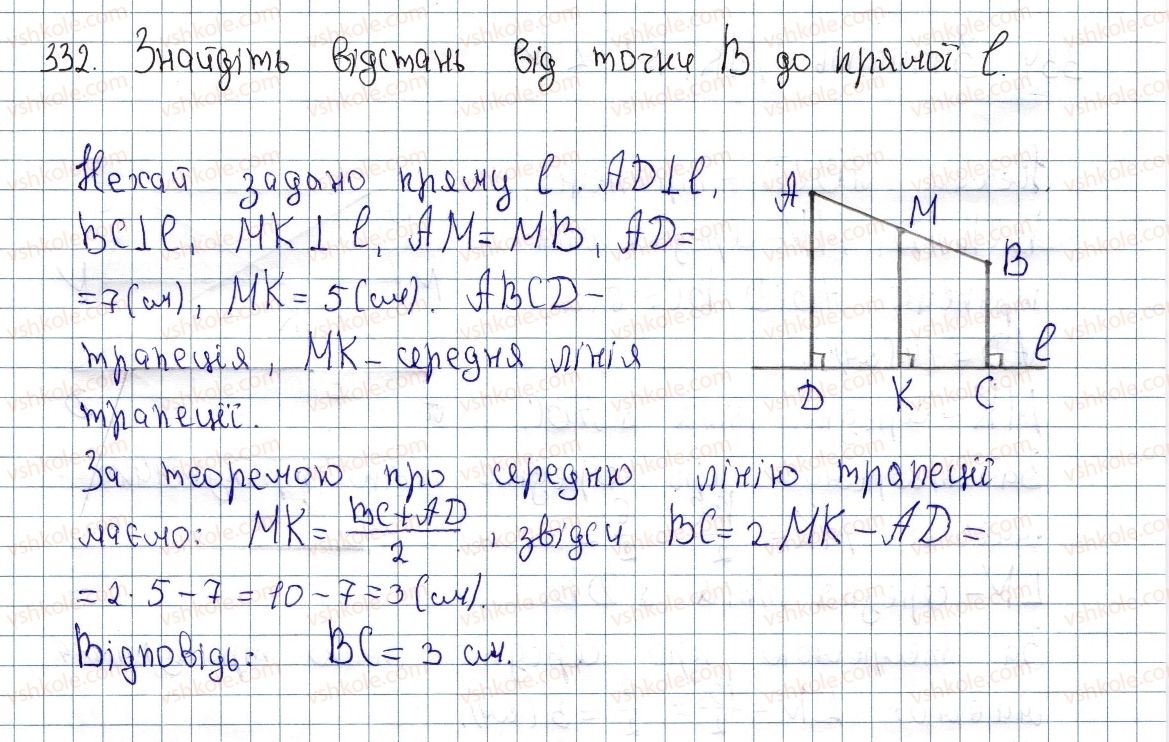 332. Знайдіть відстань від точки B до прямої l.
Нехай задано пряму l. AD⊥l,
BC⊥l, MK⊥l, AM=MB, AD=
=7(см), MK=5(см). ABCD –
трапеція, MK – середня лінія
трапеції.
A M B l
D K C
За теоремою про середню лінію трапеції
маємо: MK = (BC+AD)/2, звідси BC=2MK–AD=
=2·5–7=10–7=3(см).
Відповідь: BC=3 см.
vshkole.com